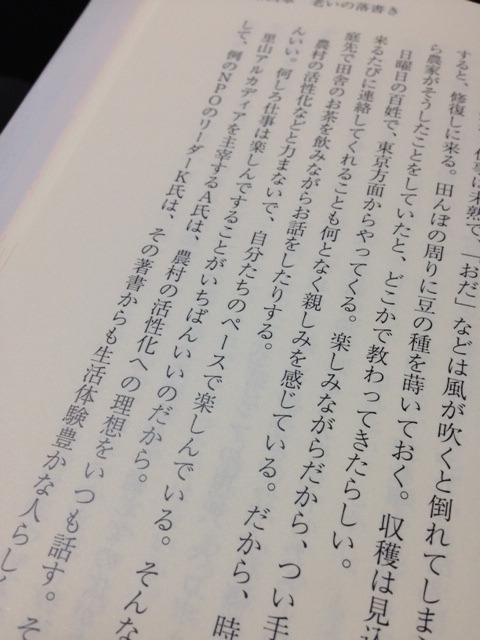 章 老いの落書き
仕事は未熟で、「おだ」などは風が吹くと倒れてしま
すると、修復しに来る。田んぼの周りに豆の種を蒔いておく。収穫は見込
ら農家がそうしたことをしていたと、どこかで教わってきたらしい。
日曜日の百姓で、東京方面からやってくる。楽しみながらだから、つい手
来るたびに連絡してくれることも何となく親しみを感じている。だから、時
庭先で田舎のお茶を飲みながらお話をしたりする。
農村の活性化などと力まないで、自分たちのペースで楽しんでいる。そんな
んいい。何しろ仕事は楽しんですることがいちばんいいのだから。
里山アルカディアを主宰するA氏は、農村の活性化への理想をいつも話す。そ
して、例のNPOのリーダーK氏は、その著書からも生活体験豊かな人らしく